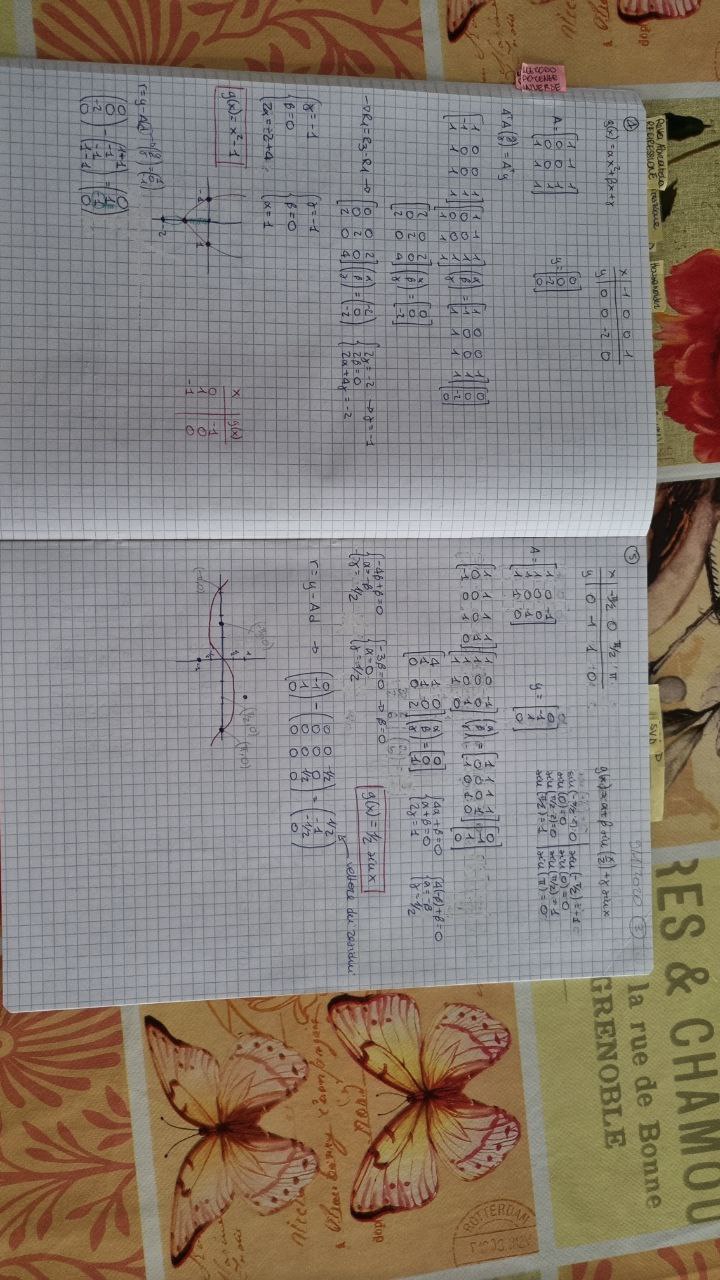 REGRESSIONE
Householder
SVD
RES & CHAMOU
la rue de Bonne
GRENOBLE
ROTTERDAM
METODO
POTENZE
INVERSE
1
g(x) = αx² + βx + γ
x | -1 0 0 1
y | 0 0 -2 0
A = [1 -1 1
0 0 1
0 0 1
1 1 1]
y = [0
0
-2
0]
AᵀA (α β γ) = Aᵀy
[1 0 0 1
-1 0 0 1
1 1 1 1] [1 -1 1
0 0 1
0 0 1
1 1 1] (α β γ) = [1 0 0 1
-1 0 0 1
1 1 1 1] [0
0
-2
0]
[2 0 2
0 2 0
2 0 4] (α β γ) = [0
0
-2]
→ R1 = R3 - R1 → [0 0 2
0 2 0
2 0 4] (α β γ) = (-2
0
-2)
{2γ = -2 → γ = -1
2β = 0
2α + 4γ = -2
{γ = -1
β = 0
2α = -2 + 4
{γ = -1
β = 0
α = 1
g(x) = x² - 1
-1 1
-2
x | g(x)
0 | -1
1 | 0
-1 | 0
r = y - Ad
(0
0
-2
0) - (1-1
-1
-1
1-1) =
5
x | -π/2 0 π/2 π
y | 0 -1 1 0
g(x) = α + β sin(x/2) + γ sin x
sin(0) = 0
sin(-π/2) = -1
sin(0) = 0
sin(π/2) = 1
sin(π) = 0
A = [1 0 -1
1 0 0
1 0 1
1 1 0]
y = [0
-1
1
0]
[1 1 1 1
0 0 0 1
-1 0 1 0] [1 0 -1
1 0 0
1 0 1
1 1 0] (α β γ) = [1 1 1 1
0 0 0 1
-1 0 1 0] [0
-1
1
0]
[4 1 0
1 1 0
0 0 2] (α β γ) = [0
0
1]
{4α + β = 0
α + β = 0
2γ = 1
{4(-β) + β = 0
α = -β
γ = 1/2
{-4β + β = 0
α = -β
γ = 1/2
{-3β = 0 → β = 0
α = 0
γ = 1/2
g(x) = 1/2 sin x
vettore dei residui
r = y - Ad → (0
-1
1
0) - (0 0 -1/2
0 0 0
0 0 1/2
0 0 0) = (1/2
-1
-1/2
0)
(π/2, 0)
(π, 0)